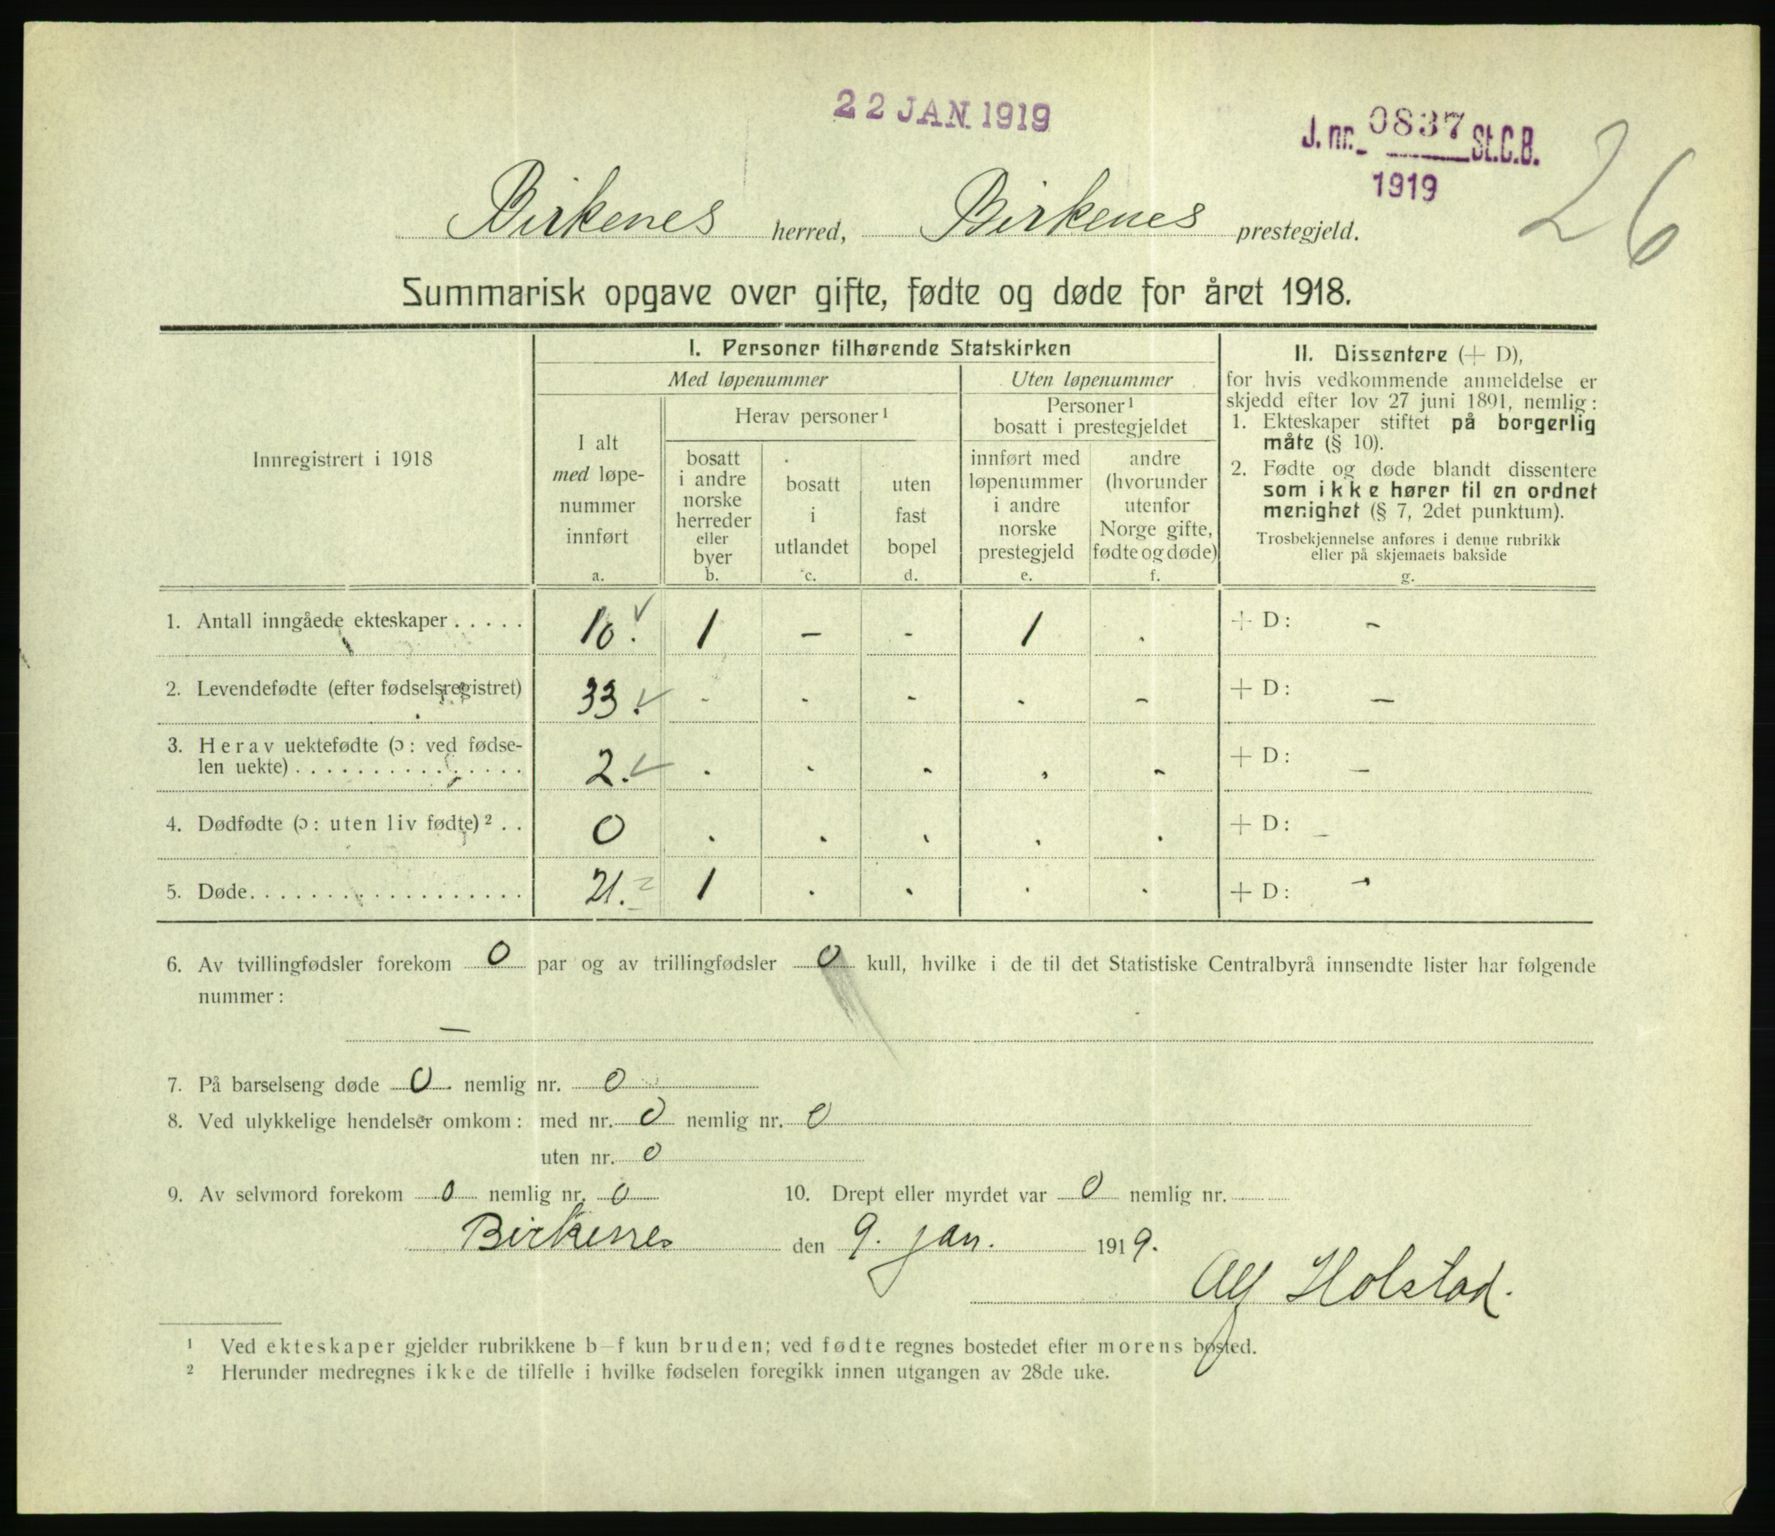 22 JAN. 1919
J. nr. 0837 St.C.B.
1919
26
Birkenes herred, Birkenes prestegjeld.
Summarisk opgave over gifte, fødte og døde for året 1918.
Innregistrert i 1918
I. Personer tilhørende Statskirken
Med løpenummer
Uten løpenummer
I alt
med løpe-
nummer
innført
a.
Herav personer¹
bosatt
i andre
norske
herreder
eller
byer
b.
bosatt
i
utlandet
c.
uten
fast
bopel
d.
Personer¹
bosatt i prestegjeldet
innført med
løpenummer
i andre
norske
prestegjeld
e.
andre
(hvorunder
utenfor
Norge gifte,
fødte og døde)
f.
II. Dissentere (+ D),
for hvis vedkommende anmeldelse er
skjedd efter lov 27 juni 1891, nemlig:
1. Ekteskaper stiftet på borgerlig
måte (§ 10).
2. Fødte og døde blandt dissentere
som ikke hører til en ordnet
menighet (§ 7, 2det punktum).
Trosbekjennelse anføres i denne rubrikk
eller på skjemaets bakside
g.
1. Antall inngåede ekteskaper ..... 10. 1 – - 1 . + D: –
2. Levendefødte (efter fødselsregistret) 33. - - - - - + D: –
3. Herav uektefødte (ɔ: ved fødse-
len uekte) ............... 2. . . . . - + D: –
4. Dødfødte (ɔ: uten liv fødte)² .. 0 . . . . . + D: –
5. Døde .................. 21. 1 . . . . + D: –
6. Av tvillingfødsler forekom 0 par og av trillingfødsler 0 kull, hvilke i de til det Statistiske Centralbyrå innsendte lister har følgende
nummer:
–
7. På barselseng døde 0 nemlig nr. 0
8. Ved ulykkelige hendelser omkom: med nr. 0 nemlig nr. 0
uten nr. 0
9. Av selvmord forekom 0 nemlig nr. 0 10. Drept eller myrdet var 0 nemlig nr.
Birkenes den 9. jan. 1919.
Alf Holstad.
¹ Ved ekteskaper gjelder rubrikkene b–f kun bruden; ved fødte regnes bostedet efter morens bosted.
² Herunder medregnes ikke de tilfelle i hvilke fødselen foregikk innen utgangen av 28de uke.